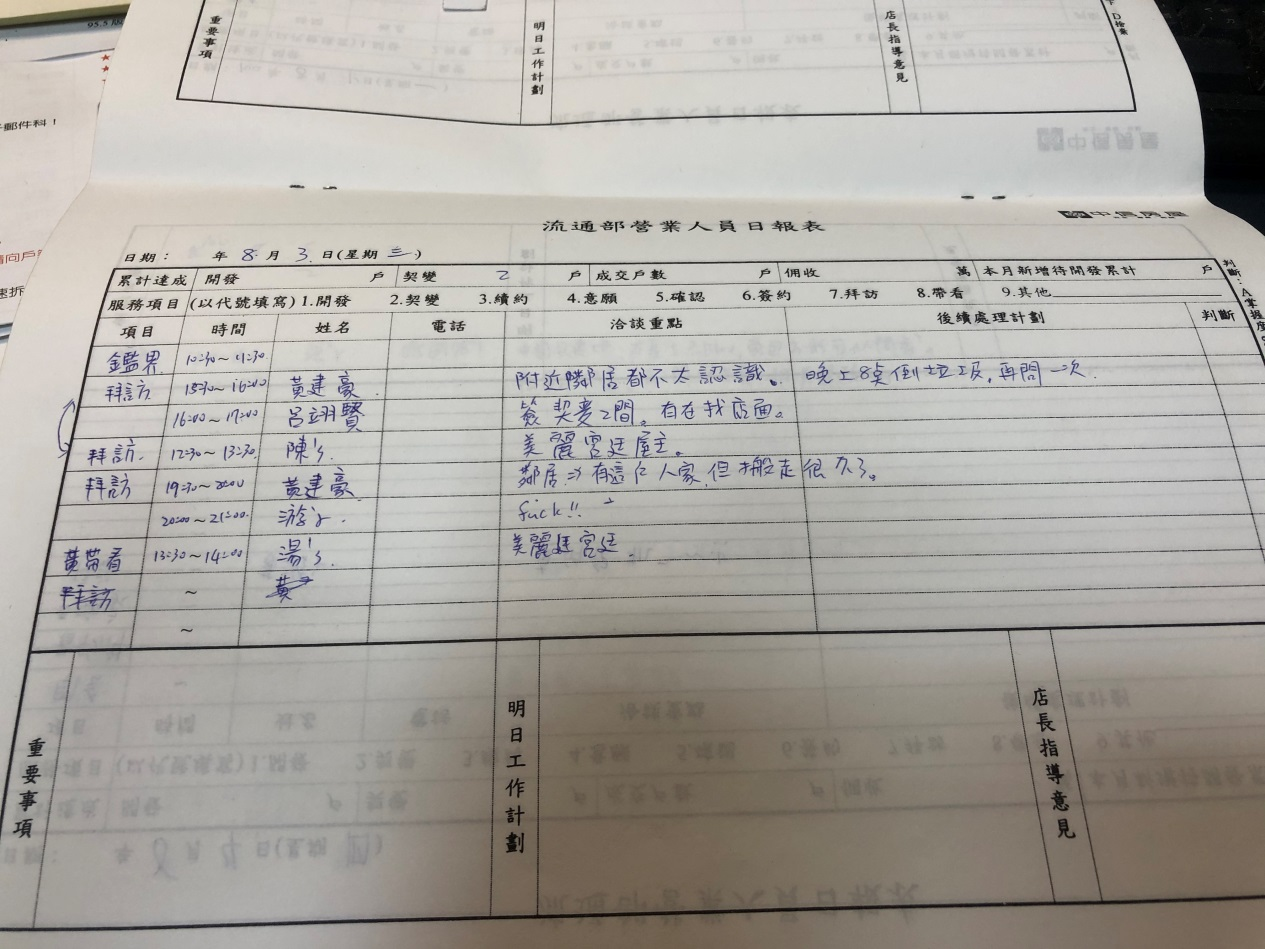 95.5
重要事項
明日工作計劃
店長指導意見
郵件科！
中信房屋
流通部營業人員日報表
日期： 年 8 月 3 日(星期 三 )
累計達成 開發 戶 契變 2 戶 成交戶數 戶 佣收 萬 本月新增待開發累計 戶
服務項目 (以代號填寫) 1.開發 2.契變 3.續約 4.意願 5.確認 6.簽約 7.拜訪 8.帶看 9.其他
判斷：A.掌握度
項目 時間 姓名 電話 洽談重點 後續處理計劃 判斷
鑑界 10:30～11:30
拜訪 15:30～16:00 黃建豪 附近隣居都不太認識。 晚上8點倒垃圾,再問一次.
16:00～17:00 呂翊賢 簽契變2間。有在找店面。
拜訪. 12:30～13:30 陳's. 美麗宮廷屋主。
拜訪 19:30～20:00 黃建豪 鄰居⇒有這戶人家,但搬走很久了。
20:00～21:00 游's. fuck!!
黃帶看 13:30～14:00 湯's. 美麗廷宮廷.
拜訪 ～ 黃
～
重要事項
明日工作計劃
店長指導意見